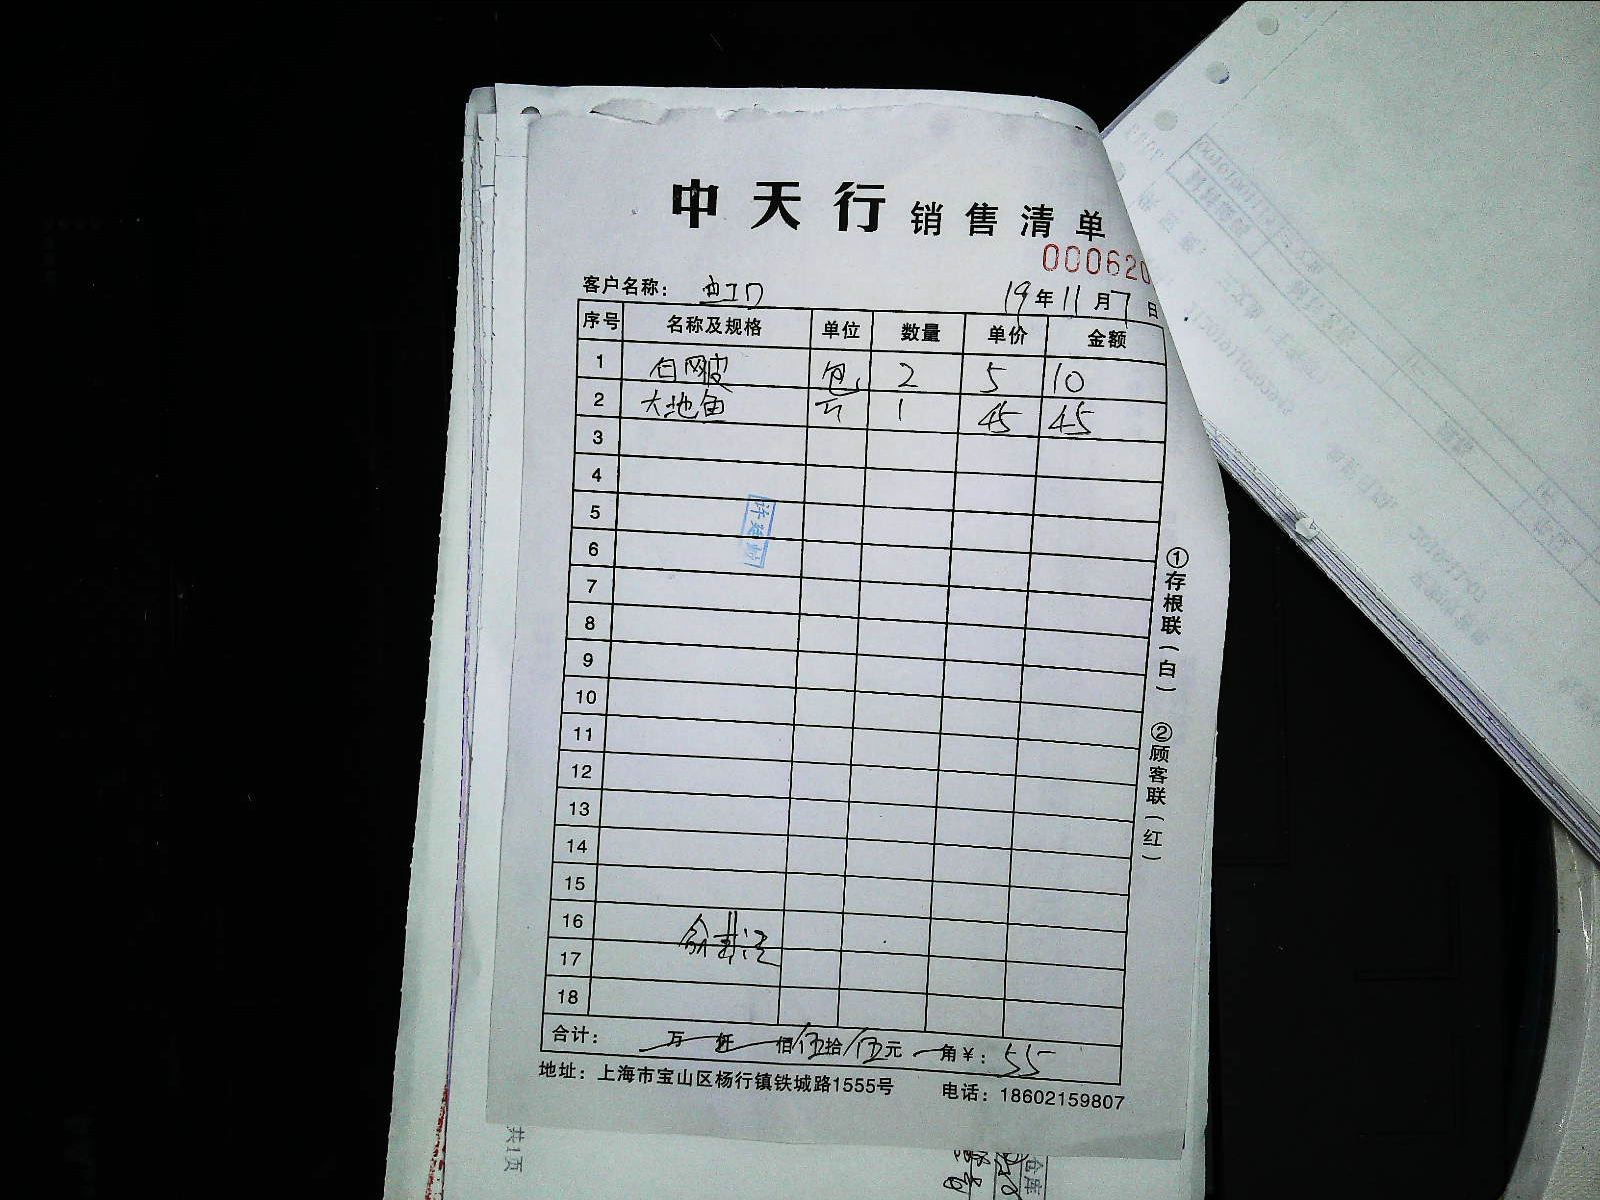 中天行 销售清单
000620
客户名称： 虹口 19年11月7日
序号 名称及规格 单位 数量 单价 金额
1 白网皮 包 2 5 10
2 大地鱼 斤 1 45 45
3
4
5
6
7
8
9
10
11
12
13
14
15
16
17
18
合计： 万 仟 佰 伍拾 伍元 角 ¥：55
地址：上海市宝山区杨行镇铁城路1555号 电话：18602159807
①存根联（白） ②顾客联（红）
共1页
仓库